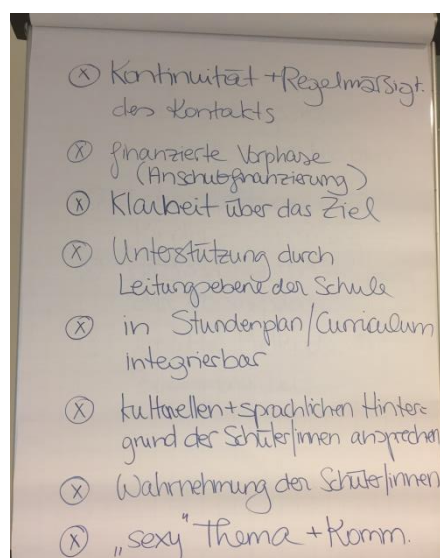 ⓧ Kontinuität + Regelmäßigk.
des Kontakts
ⓧ finanzierte Vorphase
(Anschubfinanzierung)
ⓧ Klarheit über das Ziel
ⓧ Unterstützung durch
Leitungsebene der Schule
ⓧ in Stundenplan/Curriculum
integrierbar
ⓧ kulturellen + sprachlichen Hinter=
grund der Schüler/innen ansprechen
ⓧ Wahrnehmung der Schüler/innen
ⓧ „sexy" Thema + Komm.